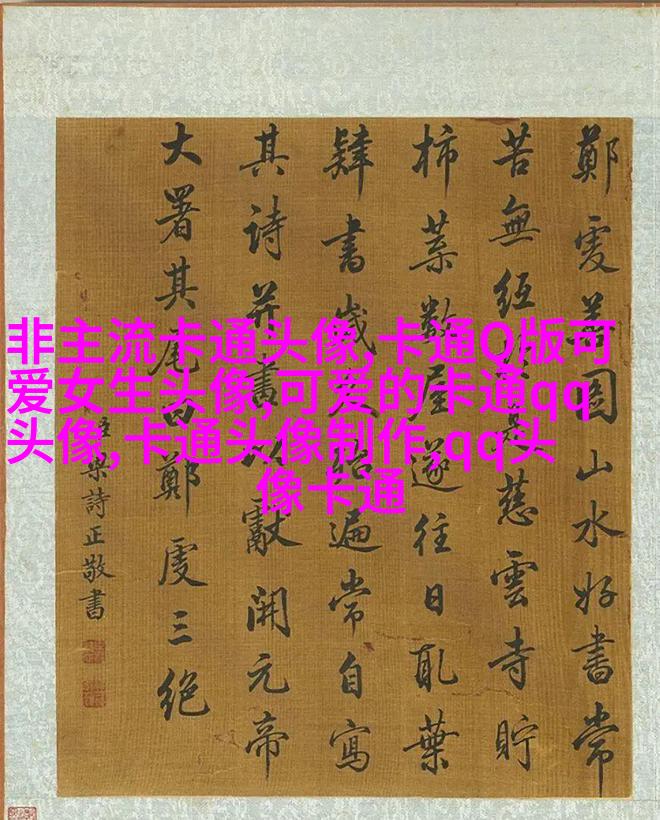 鄭虔善圖山水好書常
苦無紙於是慈雲寺貯
柿葉數屋遂往日取葉
肄書歲久殆遍常自寫
其詩并畫以獻開元帝
大署其尾曰鄭虔三絕
臣梁詩正敬書
非主流卡通头像,卡通Q版可
爱女生头像,可爱的卡通qq
头像,卡通头像制作,qq头
像卡通